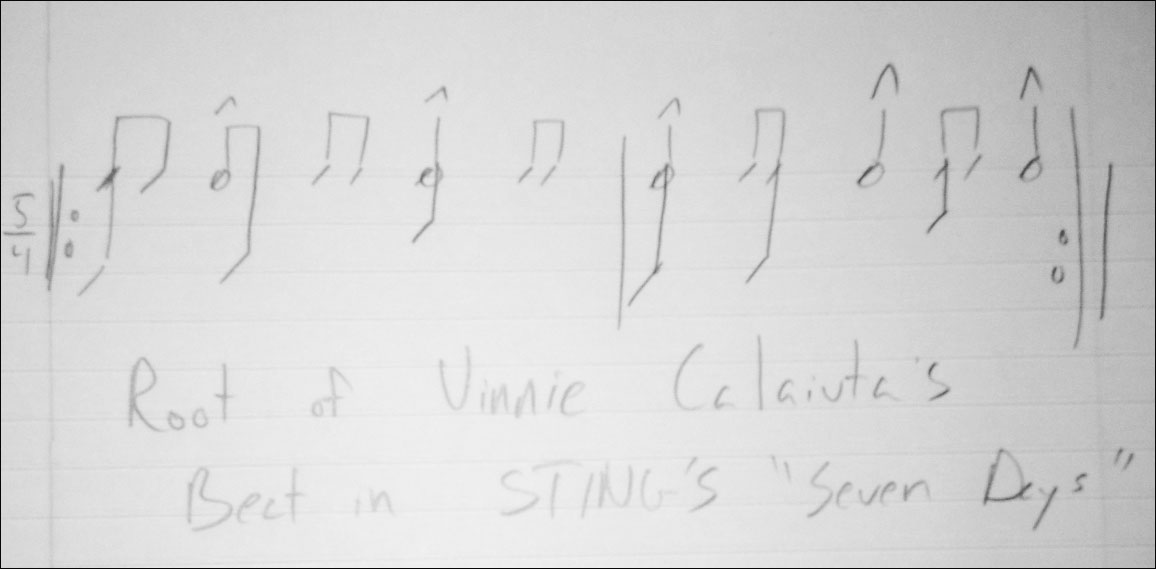 5
4
Root of Vinnie Calaiuta's
Beat in STING'S "Seven Days"